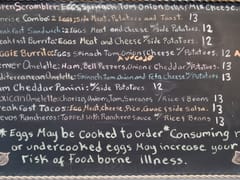 Scrambler: Eggs, Spinach, Tom, Onions, Cheese
Combo: 2 Eggs, Side Meat, Potatoes and Toast. 13
Breakfast Sandwich: 2 Eggs Meat and Cheese w/Side Potatoes. 12
Breakfast Burrito: Eggs Meat and Cheese w/Side Potatoes. 13
Burrito: Eggs Spinach Tom Onion Cheese w/Potatoes. 13
Avocado
Denver Omelette: Ham, Bell Peppers, Onion, Cheddar w/Potatoes. 13
Mediterranean Omelette: Spinach, Tom, Onion and Feta Cheese w/Potatoes. 13
Ham Cheddar Panini: w/Side Potatoes. 12
Mexican Omelette: Chorizo, Onion, Tom, Serranos w/Rice & Beans 13
Breakfast Tacos: Egg, Meat, Cheese, Pico, Guac & side Salsa. 13
Huevos Rancheros: Topped with Ranchero Sauce w/Rice & Beans. 13
*Eggs May be Cooked to Order* Consuming
or undercooked eggs May increase your
risk of food borne illness.